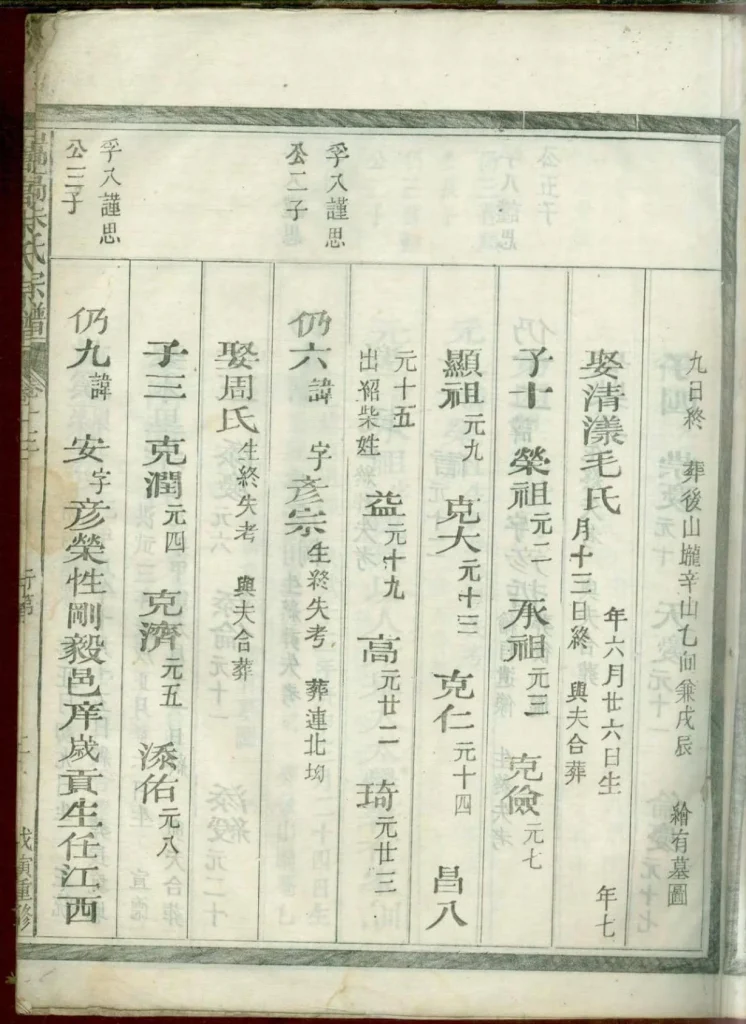 九日終 葬後山壠辛山乚向兼戌辰 繪有墓圖
娶清漾毛氏 年六月廿六日生 年七
月十三日終 與夫合葬
子十 榮祖元二 承祖元三 克儉元七
顯祖元九 克大元十三 克仁元十四 昌八
元十五
出紹柴姓 益元十九 高元廿二 琦元廿三
孚八謹思
公二子
仍六諱 字彥宗生終失考 葬連北坳
娶周氏生終失考 與夫合葬
子三 克潤元四 克濟元五 添佑元八
孚八謹思
公三子
仍九諱 安字彥榮性剛毅邑庠歲貢生任江西
朱氏宗譜 卷十三 行第 戊寅重修